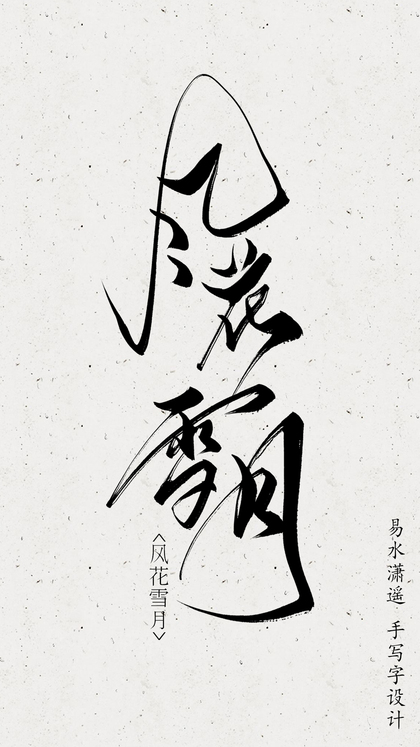 风花雪月
《风花雪月》
易水潇遥 手写字设计